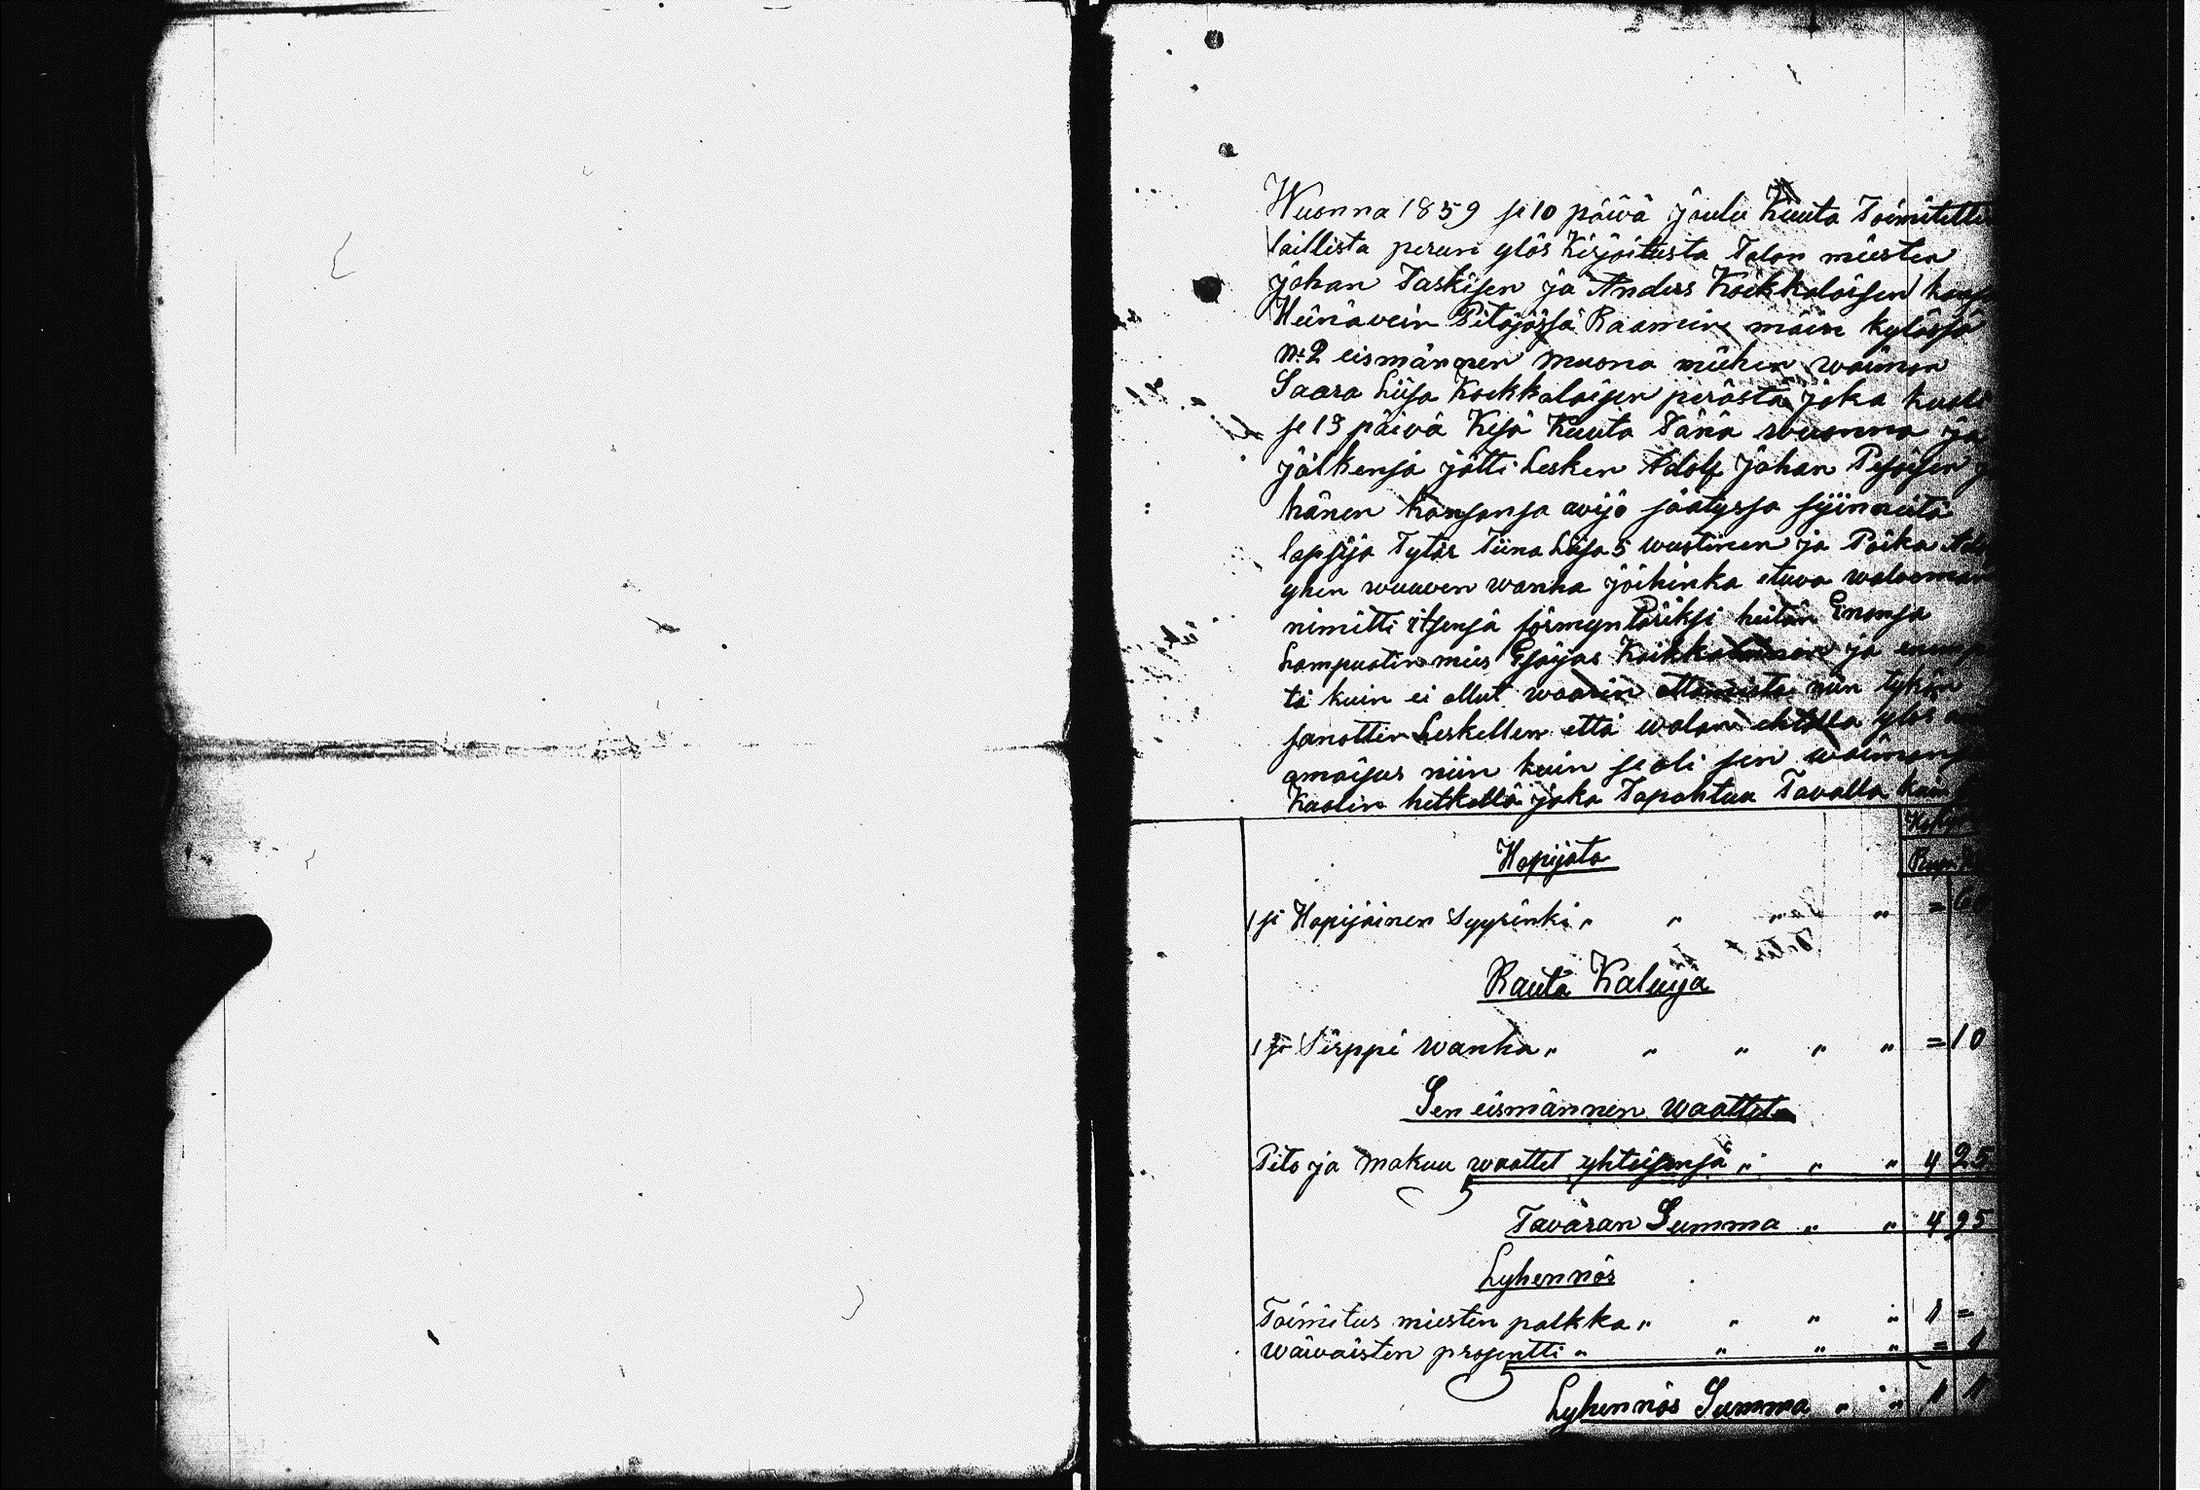 Wuonna 1859 se 10 päivä joulu Kuuta Toimitettin
laillista perun ylös Kirjoitusta Talon miesten
johan Taskisen ja Anders Koikkalaisen
Heinävein Pitäjässä Raamin mäin kylässä
No 2 eismännen muona miehen waimon
Saara Liisa Koikkalaisen perästä joka kuoli
se 13 päivä Kesä Kuuta Tänä wuonna ja
jälkensä jätti Lesken Adolf Johan Pesosen ja
hänen Kansansa avijo säätyssa syinneitä
lapsija Tytär Tiina Liisa 5 wuotinen ja Poika
yhen wuuven wanha joihinka etuva walvoman
nimitti itsensä förmyntäriksi heitän Enonsa
Lampuotin mies Esaijas Koikkalainen ja
tä kuin ei ollut waarin ottamista niin tykön
sanottin Leskellen että walan ehtolla ylös
omaisus niin kuin se oli sen waimonsa
Kuolin hetkellä joka Tapahtuu Tavalla kuin
Hopijata
1 si Hopijainen Syyrinki " " " " =
Rauta Kaluija
1 si Sirppi wanha " " " " " = 10
Sen eismännen waattet
Pito ja makuu waattet yhteisensä " " " 4 25
Tavaran Summa " " 4 95
Lyhennös
Toimitus miesten palkka " " " " 1 =
wäiväisten prosentti " " " " = 1
Lyhennös Summa " " 1 1